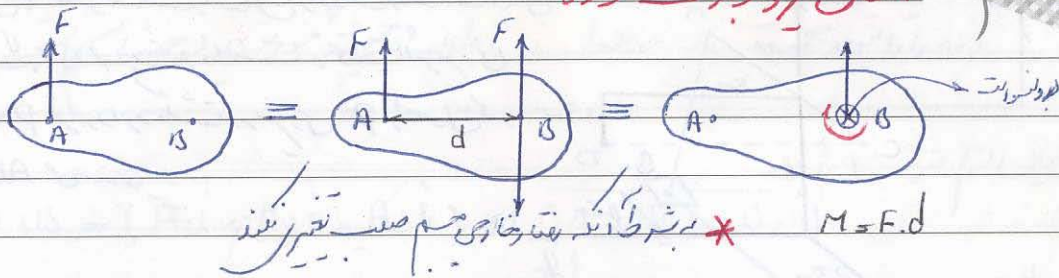 F F F
A B = A d B = A B
به شرط آنکه رفتار خارجی جسم صلب تغییر نکند *
M = F.d